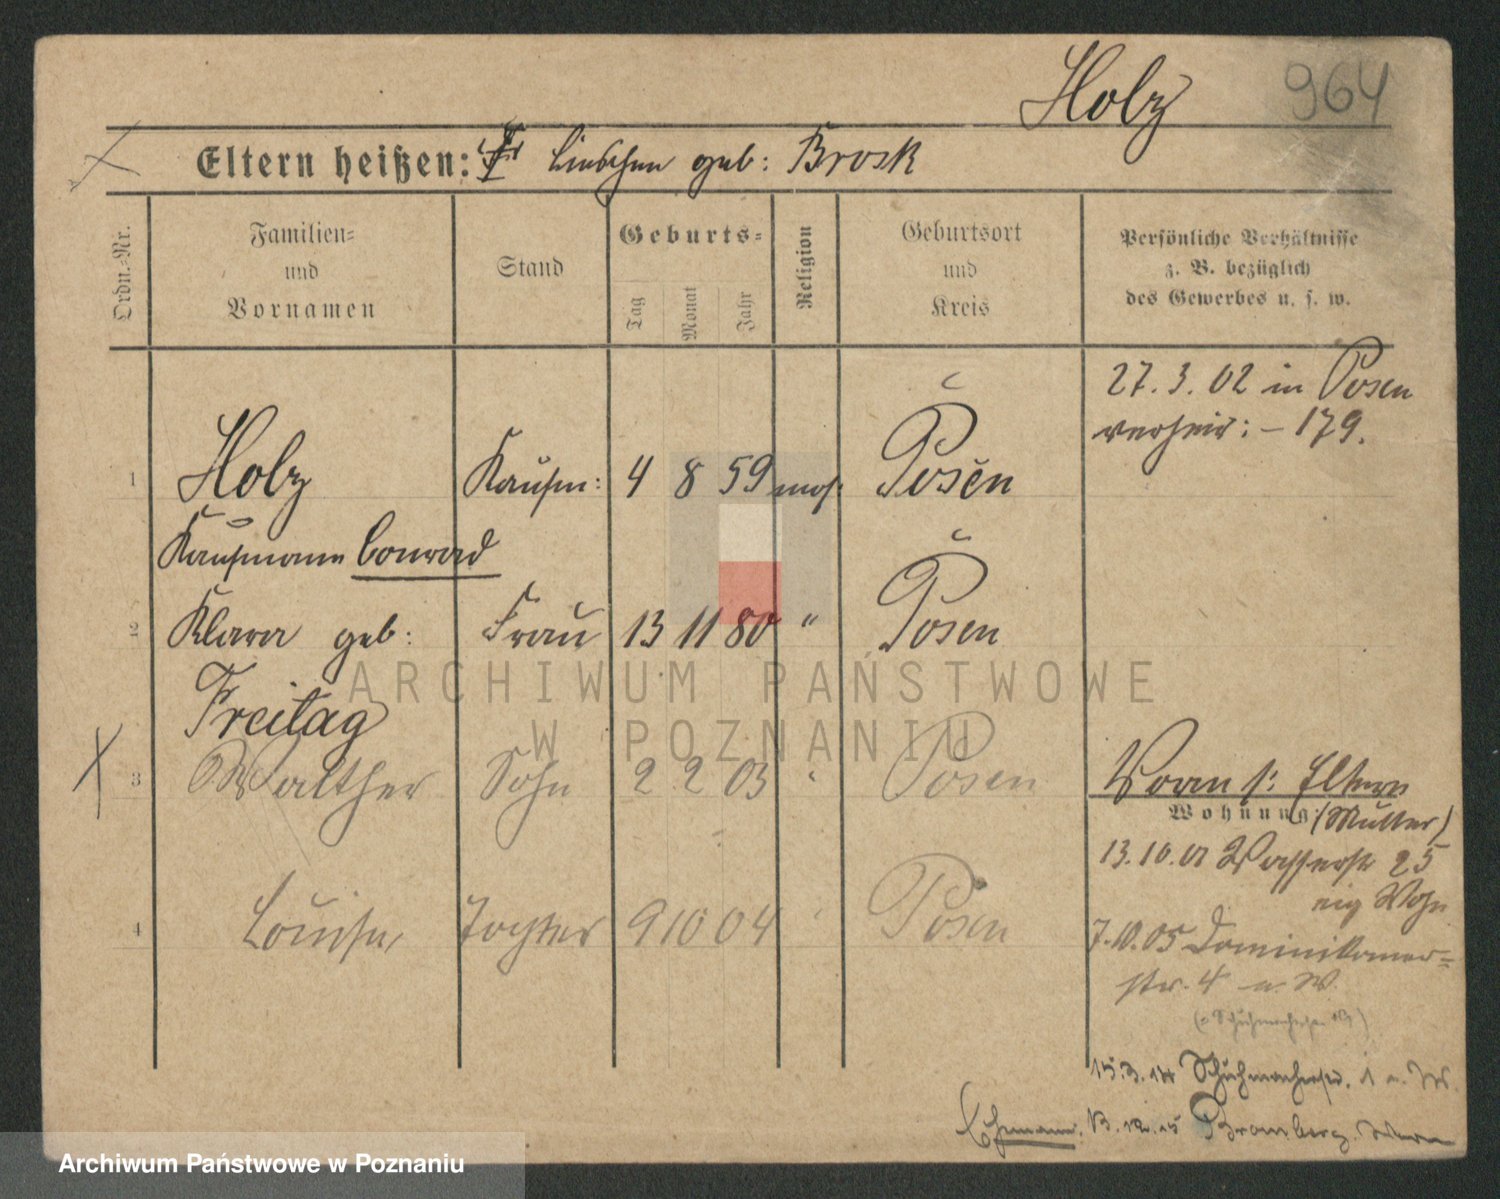 Holz 964
Eltern heißen: Liebchen geb: Brosk
Ordn.-Nr.
Familien-
und
Vornamen
Stand
Geburts-
Tag
Monat
Jahr
Religion
Geburtsort
und
Kreis
Persönliche Verhältnisse
z. B. bezüglich
des Gewerbes u. s. w.
27. 3. 02 in Posen
verheir: – 179.
1 Holz Kaufm: 4 8 59 mos: Posen
Kaufmann Conrad
2 Klara geb: Frau 13 11 80 " Posen
Freitag
ARCHIWUM PAŃSTWOWE
W POZNANIU
3 Walther Sohn 2 2 03 " Posen
Vorm s: Eltern
Wohnung: (Mutter)
13.10.01 Wasserstr 25
eig Wohn
4 Louise, Tochter 9 10 04 " Posen
7.10.05 Dominikaner-
str. 4 e. W.
15.3.14 Schuhmacherstr. 1 e. W.
Ehemann: Bromberg
Archiwum Państwowe w Poznaniu